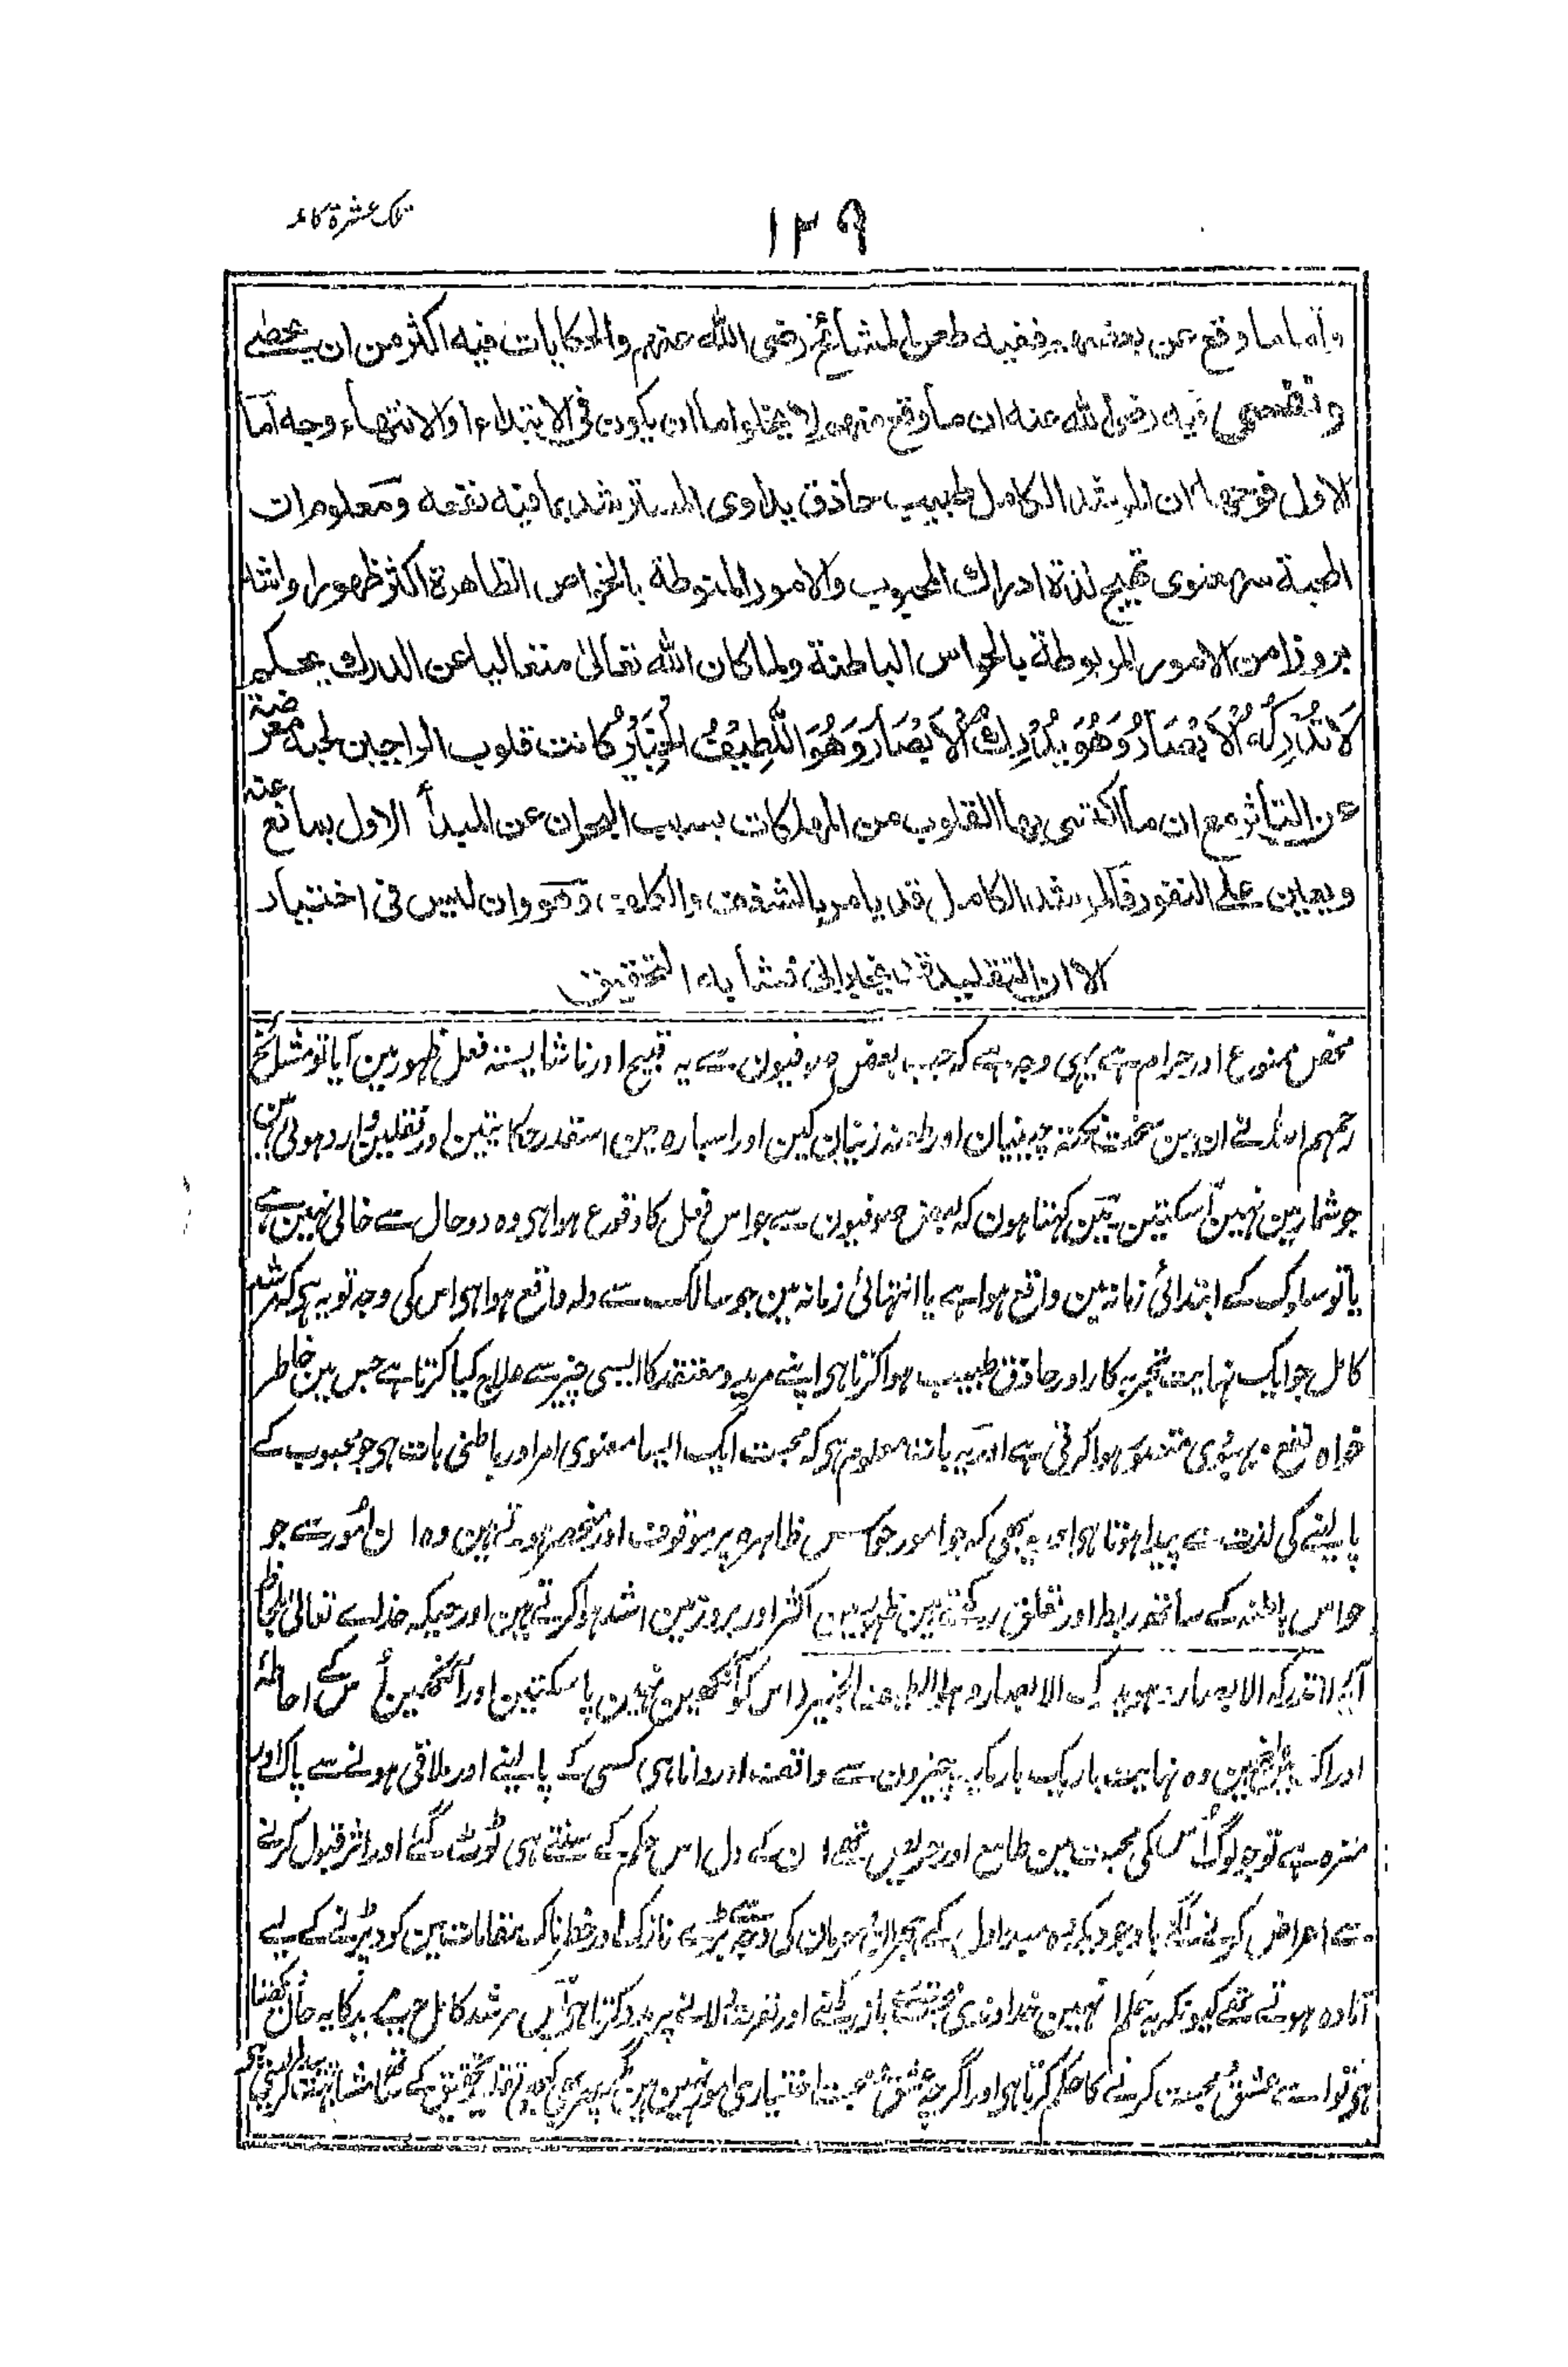 تلک عشرة کاملہ
۱۲۹
واما ما وقع عن بعضهم ففيه طعن المشائخ رضى الله عنهم والحكايات فيه اكثر من ان يحصى
وتقصى فيه رضى الله عنه ان ما وقع منهم لا يخلوا ما ان يكون فى الابتداء او الانتهاء وجه اما
الاول فوجه ان المرشد الكامل طبيب حاذق يداوى المسترشد بما فيه نفعه ومعلوم ان
المحبة سر معنوى تهييج لذة ادراك المحبوب والامور المنوطة بالحواس الظاهرة اكثر ظهورا واشد
بروزا من الامور المربوطة بالحواس الباطنة ولما كان الله تعالى متعاليا عن الدرك بحكم
لَا تُدْرِكُهُ الْاَبْصَارُ وَهُوَ يُدْرِكُ الْاَبْصَارَ وَهُوَ اللَّطِيْفُ الْخَبِيْرُ كانت قلوب الراجين لحبه معرضة
عن التأثر مع ان ما اكتسى بها القلوب من المهلكات بسبب الهجران عن المبدأ الاول يمانع عنه
ويعاين على النفور فالمرشد الكامل قد يامر بالشغف وهو وان ليس فى اختيار
الا ان التقليد قد ينجر الى نشأ به التحقيق
محض ممنوع اور حرام ہے یہی وجہ ہے کہ جب بعض صوفیون سے یہ قبیح اور ناشایستہ فعل ظہور مین آیا تو مشائخ
رحمہم اللہ نے ان مین سخت نکتہ چینیان اور طعنہ زنیان کین اور اسبارہ مین اسقدر حکایتین اور نقلین وارد ہوئی ہین
جو شمار مین نہین آسکتین مین کہتا ہون کہ بعض صوفیون سے جو اس فعل کا وقوع ہوا ہی وہ دو حال سے خالی نہین ہے
یا تو سلوک کے ابتدائی زمانہ مین واقع ہوا ہے یا انتہائی زمانہ مین جو سالک سے اولاً واقع ہوا ہی اس کی وجہ تو یہ ہی کہ مرشد
کامل جو ایک نہایت تجربہ کار اور حاذق طبیب ہوا کرتا ہی اپنے مرید و معتقد کا ایسی چیز سے علاج کیا کرتا ہے جس مین خاطر
خواہ نفع و بہبودی متصور ہوا کرتی ہے اور یہ بات معلوم ہی کہ محبت ایک ایسا معنوی امر اور باطنی بات ہی جو محبوب کے
پالینے کی لذت سے پیدا ہوتا ہی اور یہ بھی کہ جو امور حواس ظاہرہ پر موقوف اور منحصر ہوتے ہین وہ ان امور سے جو
حواس باطنہ کے ساتھ رابطہ اور تعلق رکھتے ہین ظہور مین اکثر اور بروز مین اشد ہوا کرتے ہین اور جبکہ خدائے تعالیٰ بلحاظ
آیہ لا تدرکہ الابصار وھو یدرک الابصار وھو اللطیف الخبیر (اس کو آنکھین نہین پاسکتین اور آنکھین اُس کے احاطۂ
ادراک مین ہین وہ نہایت باریک باریک چیزون سے واقف اور دانا ہی) کسی کے پالینے اور ملاقی ہونے سے پاک اور
منزہ ہے تو جو لوگ اُس کی محبت مین طامع اور حریص تھے ان کے دل اس حکم کے سنتے ہی ٹوٹ گئے اور اثر قبول کرنے
سے اعراض کرنے لگے باوجودیکہ وہ مبدء اول کے ہجران و حرمان کی وجہ سے بڑے نازک اور خطرناک مقامات مین کود پڑنے کے لیے
آمادہ ہوتے تھے کیونکہ یہ حکم انہین خداوندی محبت سے باز رکھنے اور نفرت دلانے پر مدد کرتا ہی پس مرشد کامل جب مرید کا یہ حال دیکھتا
ہی تو اسے عشق و محبت کرنے کا حکم کرتا ہی اور اگرچہ عشق و محبت اختیاری امور نہین ہین مگر پھر بھی